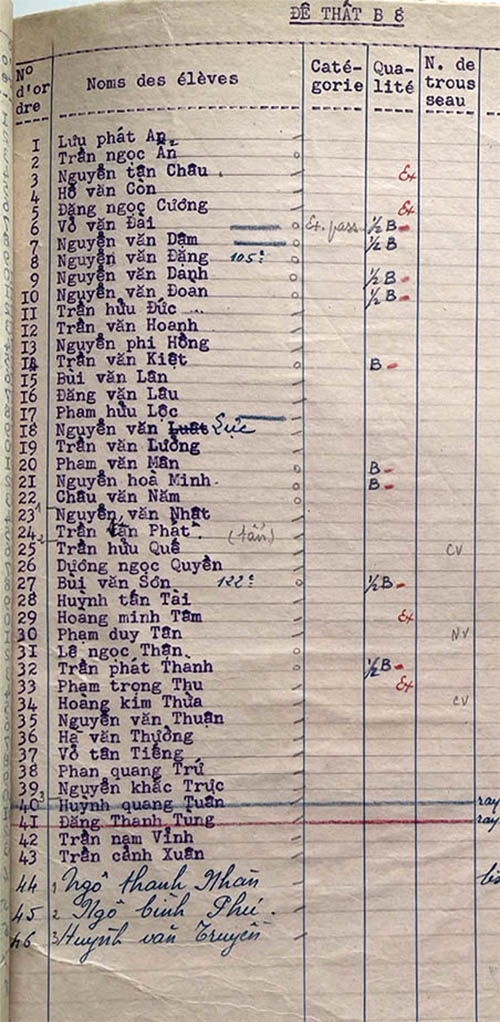 ĐÊ THẤT B 8
No d'or dre Noms des élèves Caté- gorie Qua- lité N. de trous seau
1 Lưu phát An
2 Trần ngọc Ẩn
3 Nguyễn tấn Châu Ex
4 Hồ văn Côn
5 Đặng ngọc Cương Ex
6 Võ văn Đài Ex. pass ½ B -
7 Nguyễn văn Dậm ½ B
8 Nguyễn văn Đăng 105:
9 Nguyễn văn Dảnh ½ B -
10 Nguyễn văn Đoan ½ B -
11 Trần hữu Đức ...
12 Trần văn Hoanh
13 Nguyễn phi Hồng
14 Trần văn Kiệt B -
15 Bùi văn Lân
16 Đặng văn Lâu
17 Phạm hữu Lộc
18 Nguyễn văn Luât Lực
19 Trần văn Lương
20 Phạm văn Mân B -
21 Nguyễn hoà Minh B -
22 Châu văn Năm
23 1 Nguyễn văn Nhật
24 2 Trần tấn Phát (tấn)
25 Trần hữu Quế CV
26 Dương ngọc Quyền
27 Bùi văn Sơn 122: ½ B -
28 Huỳnh tấn Tài
29 Hoàng minh Tâm Ex
30 Phạm duy Tân NV
31 Lê ngọc Thân
32 Trần phát Thanh ½ B -
33 Phạm trọng Thu Ex
34 Hoàng kim Thừa CV
35 Nguyễn văn Thuận
36 Hà văn Thưởng
37 Võ tấn Tiếng
38 Phan quang Trứ
39 Nguyễn khắc Trực
40 3 Huỳnh quang Tuân ray
41 Đặng Thanh Tùng ray
42 Trần nam Vinh
43 Trần cảnh Xuân
44 1 Ngô thanh Nhàn
45 2 Ngô bình Phú.
46 3 Huỳnh văn Truyền